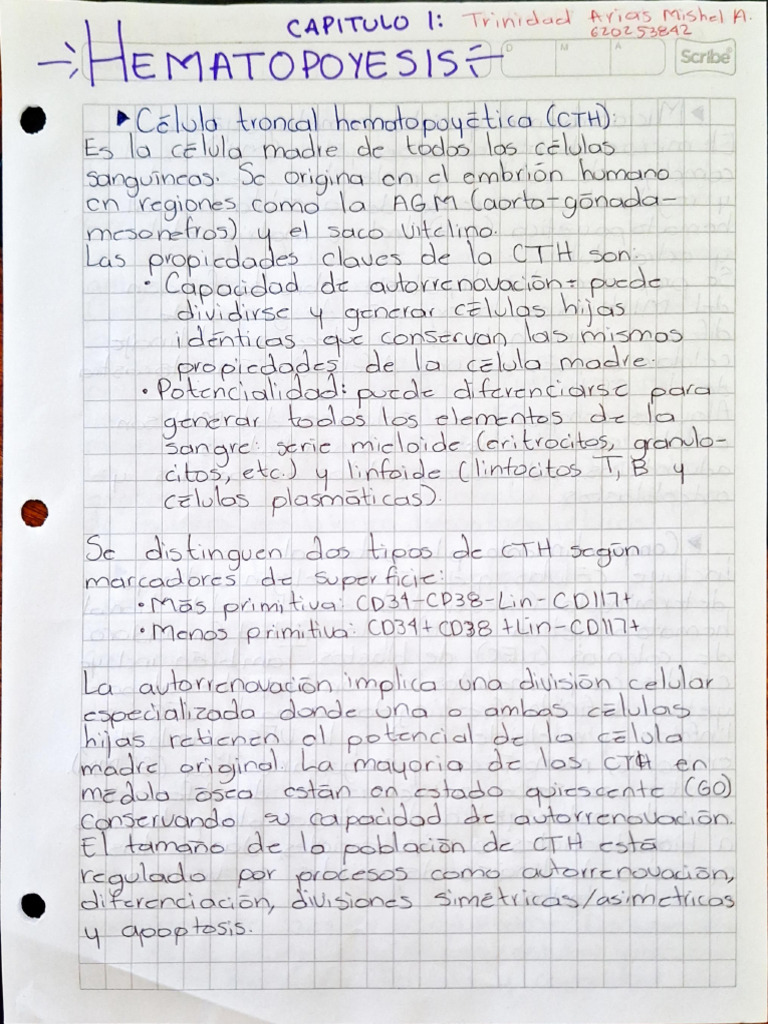 CAPITULO 1: Trinidad Arias Mishel A.
620253842
HEMATOPOYESIS
D M A
Scribe
▸ Célula troncal hematopoyética (CTH):
Es la célula madre de todas las células
sanguíneas. Se origina en el embrión humano
en regiones como la AGM (aorto-gónada-
mesonefros) y el saco vitelino.
Las propiedades claves de la CTH son:
• Capacidad de autorrenovación= puede
dividirse y generar células hijas
idénticas que conservan las mismas
propiedades de la célula madre.
• Potencialidad: puede diferenciarse para
generar todos los elementos de la
sangre: serie mieloide (eritrocitos, granulo-
citos, etc.) y linfoide (linfocitos T, B y
células plasmáticas).
Se distinguen dos tipos de CTH según
marcadores de superficie:
• Más primitiva: CD34-CD38-Lin-CD117+
• Menos primitiva: CD34+CD38+Lin-CD117+
La autorrenovación implica una división celular
especializada donde una o ambas células
hijas retienen el potencial de la célula
madre original. La mayoria de las CTH en
médula ósea están en estado quiescente (G0)
conservando su capacidad de autorrenovación.
El tamaño de la población de CTH está
regulado por procesos como autorrenovación,
diferenciación, divisiones simétricas/asimetricas
y apoptosis.